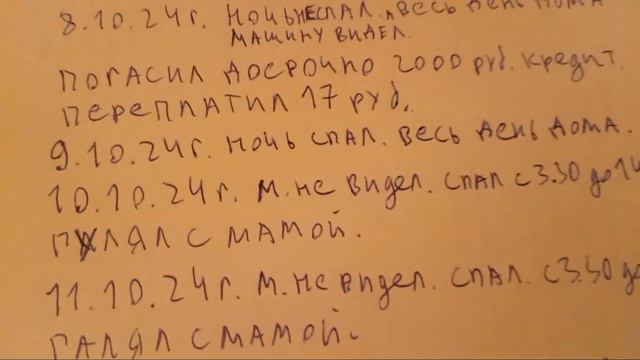 8.10.24г. НОЧЬ НЕ СПАЛ. А ВЕСЬ ДЕНЬ ДОМА
МАШИНУ ВИДЕЛ.
ПОГАСИЛ ДОСРОЧНО 2000 руб. КРЕДИТ.
ПЕРЕПЛАТИЛ 17 руб.
9.10.24г. НОЧЬ СПАЛ. ВЕСЬ ДЕНЬ ДОМА.
10.10.24г. М. НЕ ВИДЕЛ. СПАЛ С 3.30 до 14
ГУЛЯЛ С МАМОЙ.
11.10.24г. М. НЕ ВИДЕЛ. СПАЛ. С 3.30 до
ГАЛЯЛ С МАМОЙ.